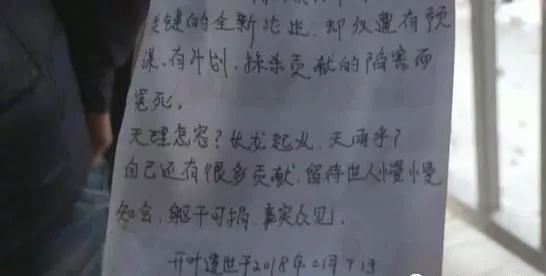 关键的全新论述，却仅遭有预
谋、有计划、抹杀贡献的陷害而
冤死。
天理怎容？长龙起火，天雨乎？
自己还有很多贡献，留待世人慢慢
知会，躯干可捐，事实么见，
开叶遗世于2018年2月7日